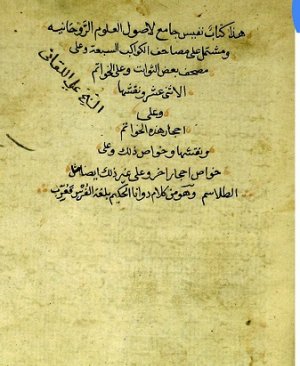 هذا كتاب نفيس جامع لاصول العلوم الروحانيه
ومشتمل على مصاحف الكواكب السبعة وعلى
مصحف بعض الثوابت وعلى الخواتم
الاثنى عشر ونقشها
وعلى
احجار هذه الخواتم
ونقشها وخواص ذلك وعلى
خواص احجار اخر وعلى غير ذلك ايضا مثل
الطلاسم وهو من كلام دوانا الحكيم بلغة الفرس فعرب
الشيخ علي